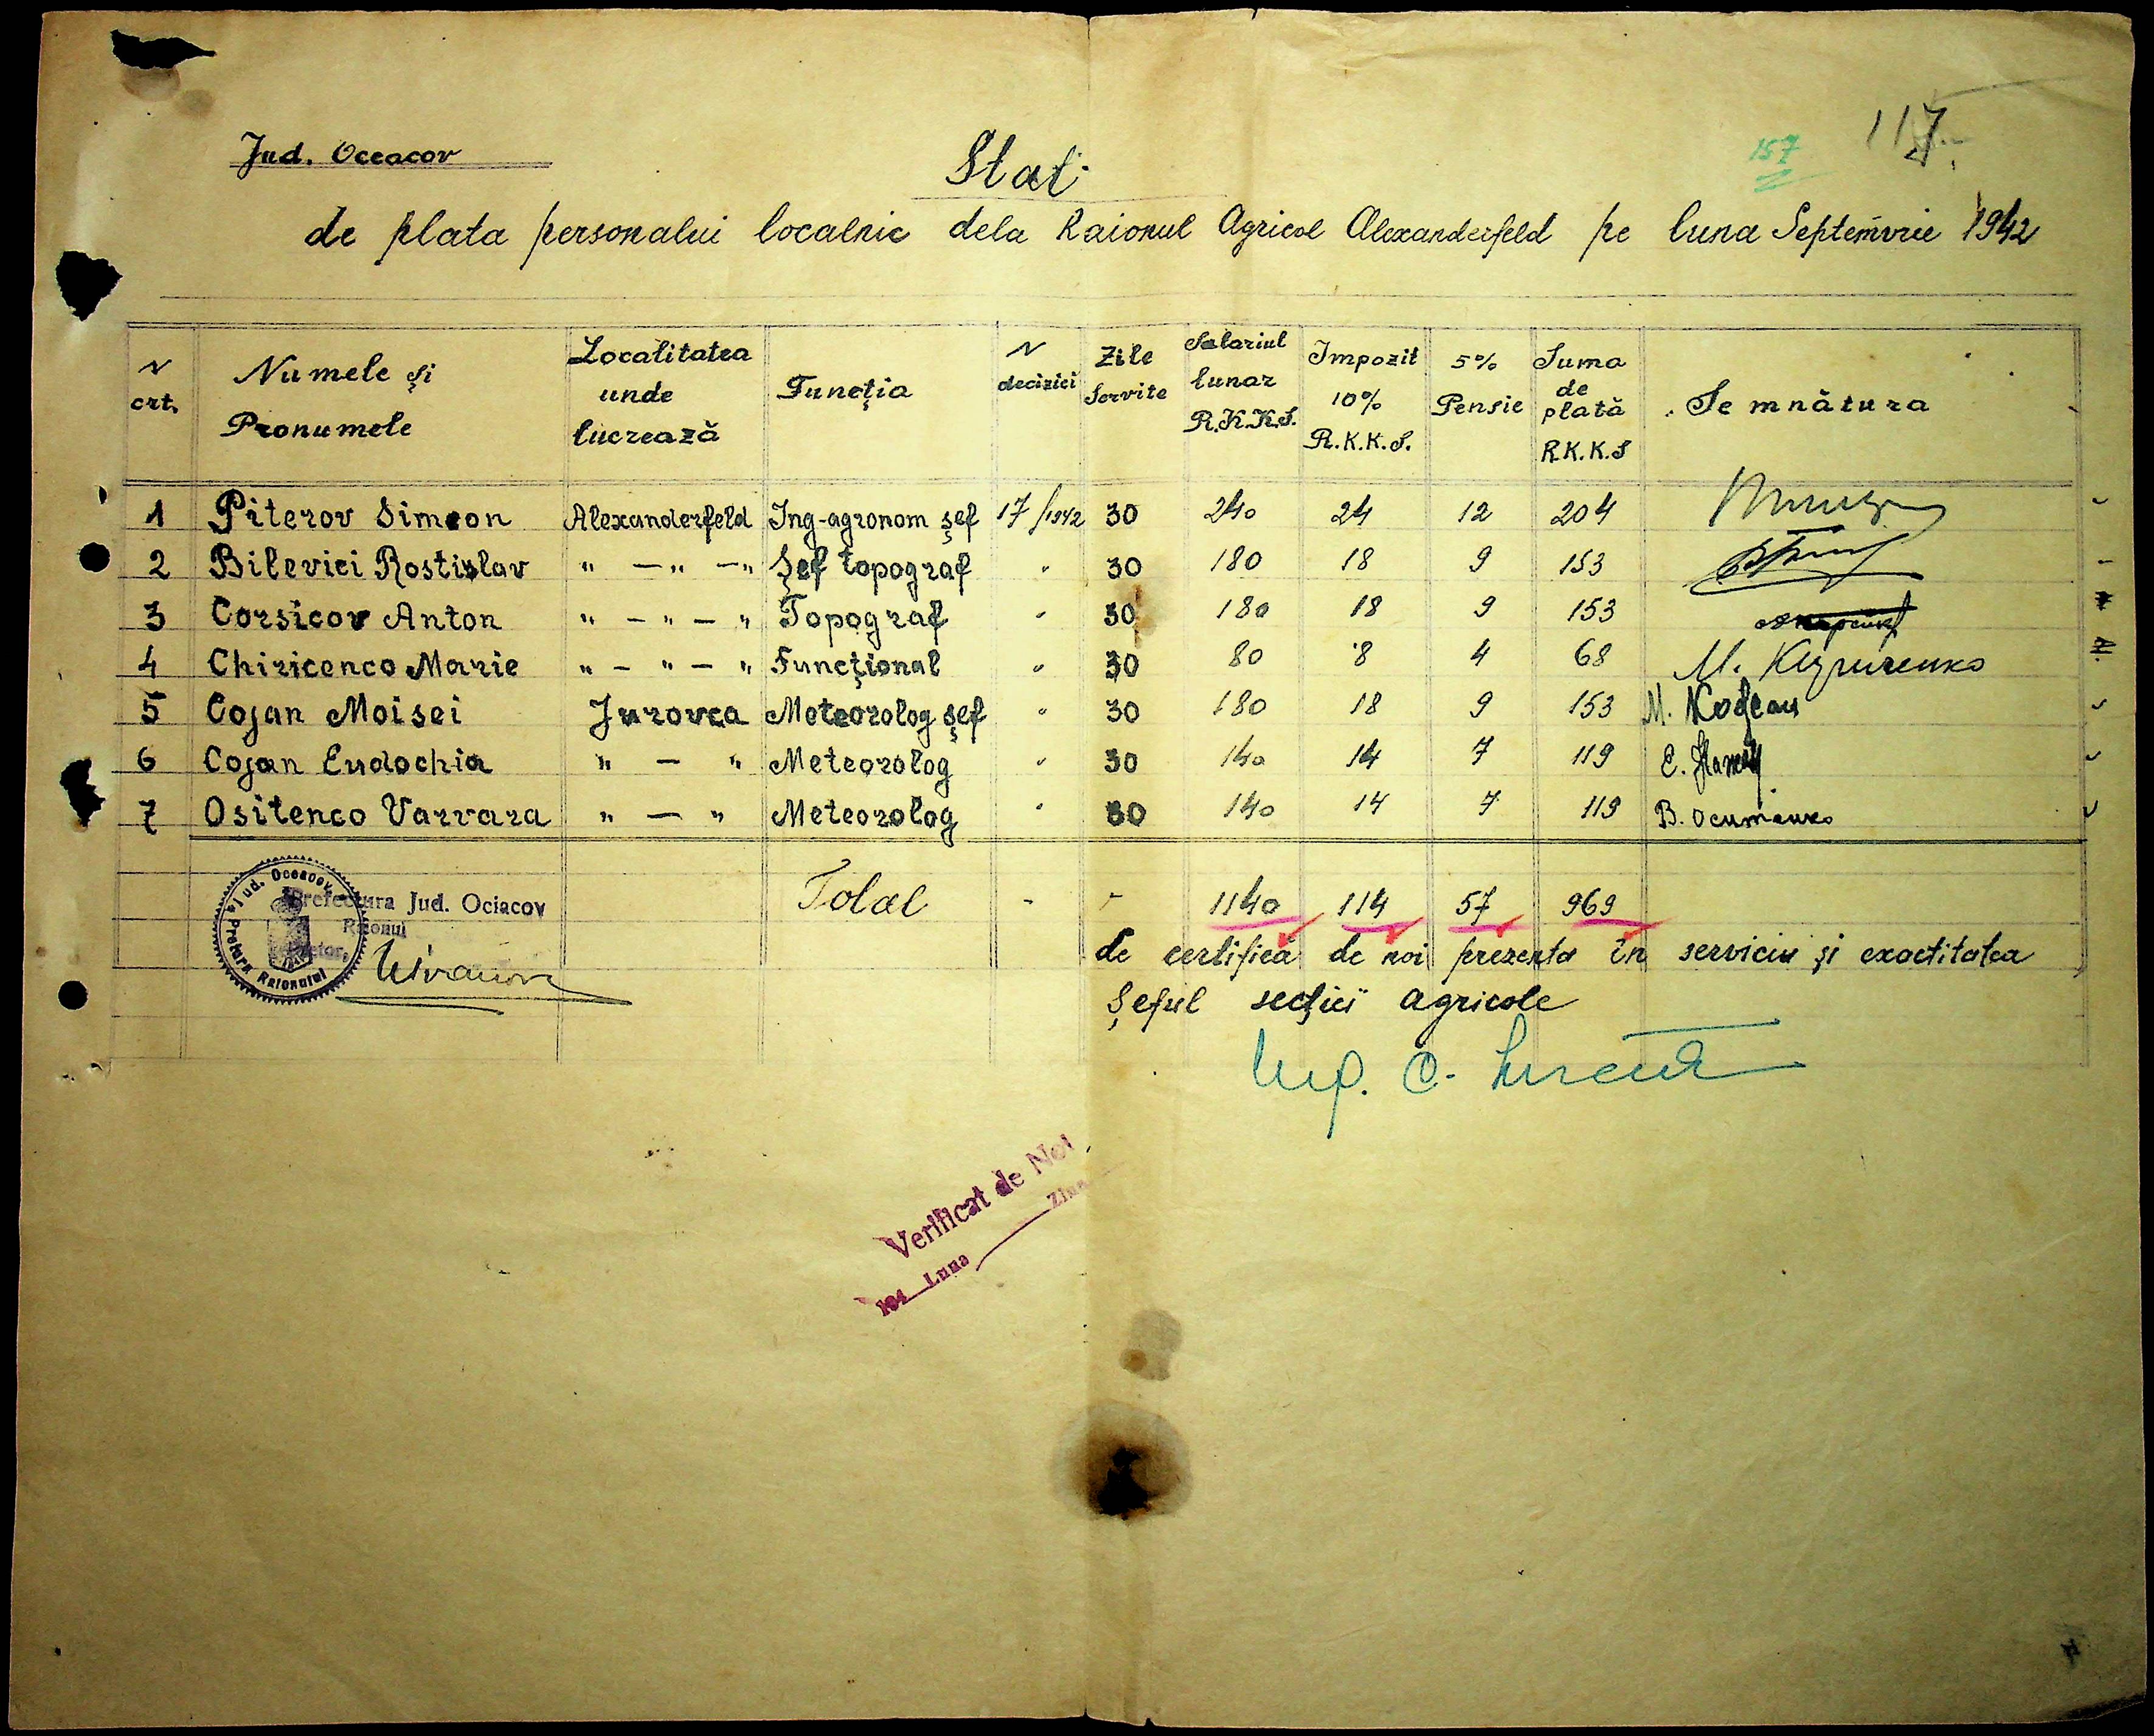 117.
157
Jud. Oceacov
Stat
de plata personalui localnic dela Raionul Agricol Alexanderfeld pe luna Septemvrie 1942
N crt. | Numele și Pronumele | Localitatea unde lucrează | Funcția | N deciziei | Zile Servite | Salariul lunar R.K.K.S. | Impozit 10% R.K.K.S. | 5% Pensie | Suma de plată R.K.K.S | Semnătura
1 Piterov Simeon Alexanderfeld Ing-agronom șef 17/1942 30 240 24 12 204
2 Bilevici Rostislav " — " — " Șef topograf " 30 180 18 9 153
3 Corsicov Anton " — " — " Topograf " 30 180 18 9 153
4 Chiricenco Marie " — " — " Funcțional " 30 80 8 4 68 М. Кириченко
5 Cojan Moisei Jurovca Meteorolog șef " 30 180 18 9 153 М. Кожан
6 Cojan Eudochia " — " Meteorolog " 30 140 14 7 119
7 Ositenco Varvara " — " Meteorolog " 30 140 14 7 119 В. Оситенко
Total - - 1140 114 57 969
Jud. Oceacov Pretura Raionului
Prefectura Jud. Ociacov
Raionul
Pretor,
de certifică de noi prezenta în serviciu și exactitatea
Șeful secției agricole
Ing. C.
Verificat de Noi
194 Luna Ziua